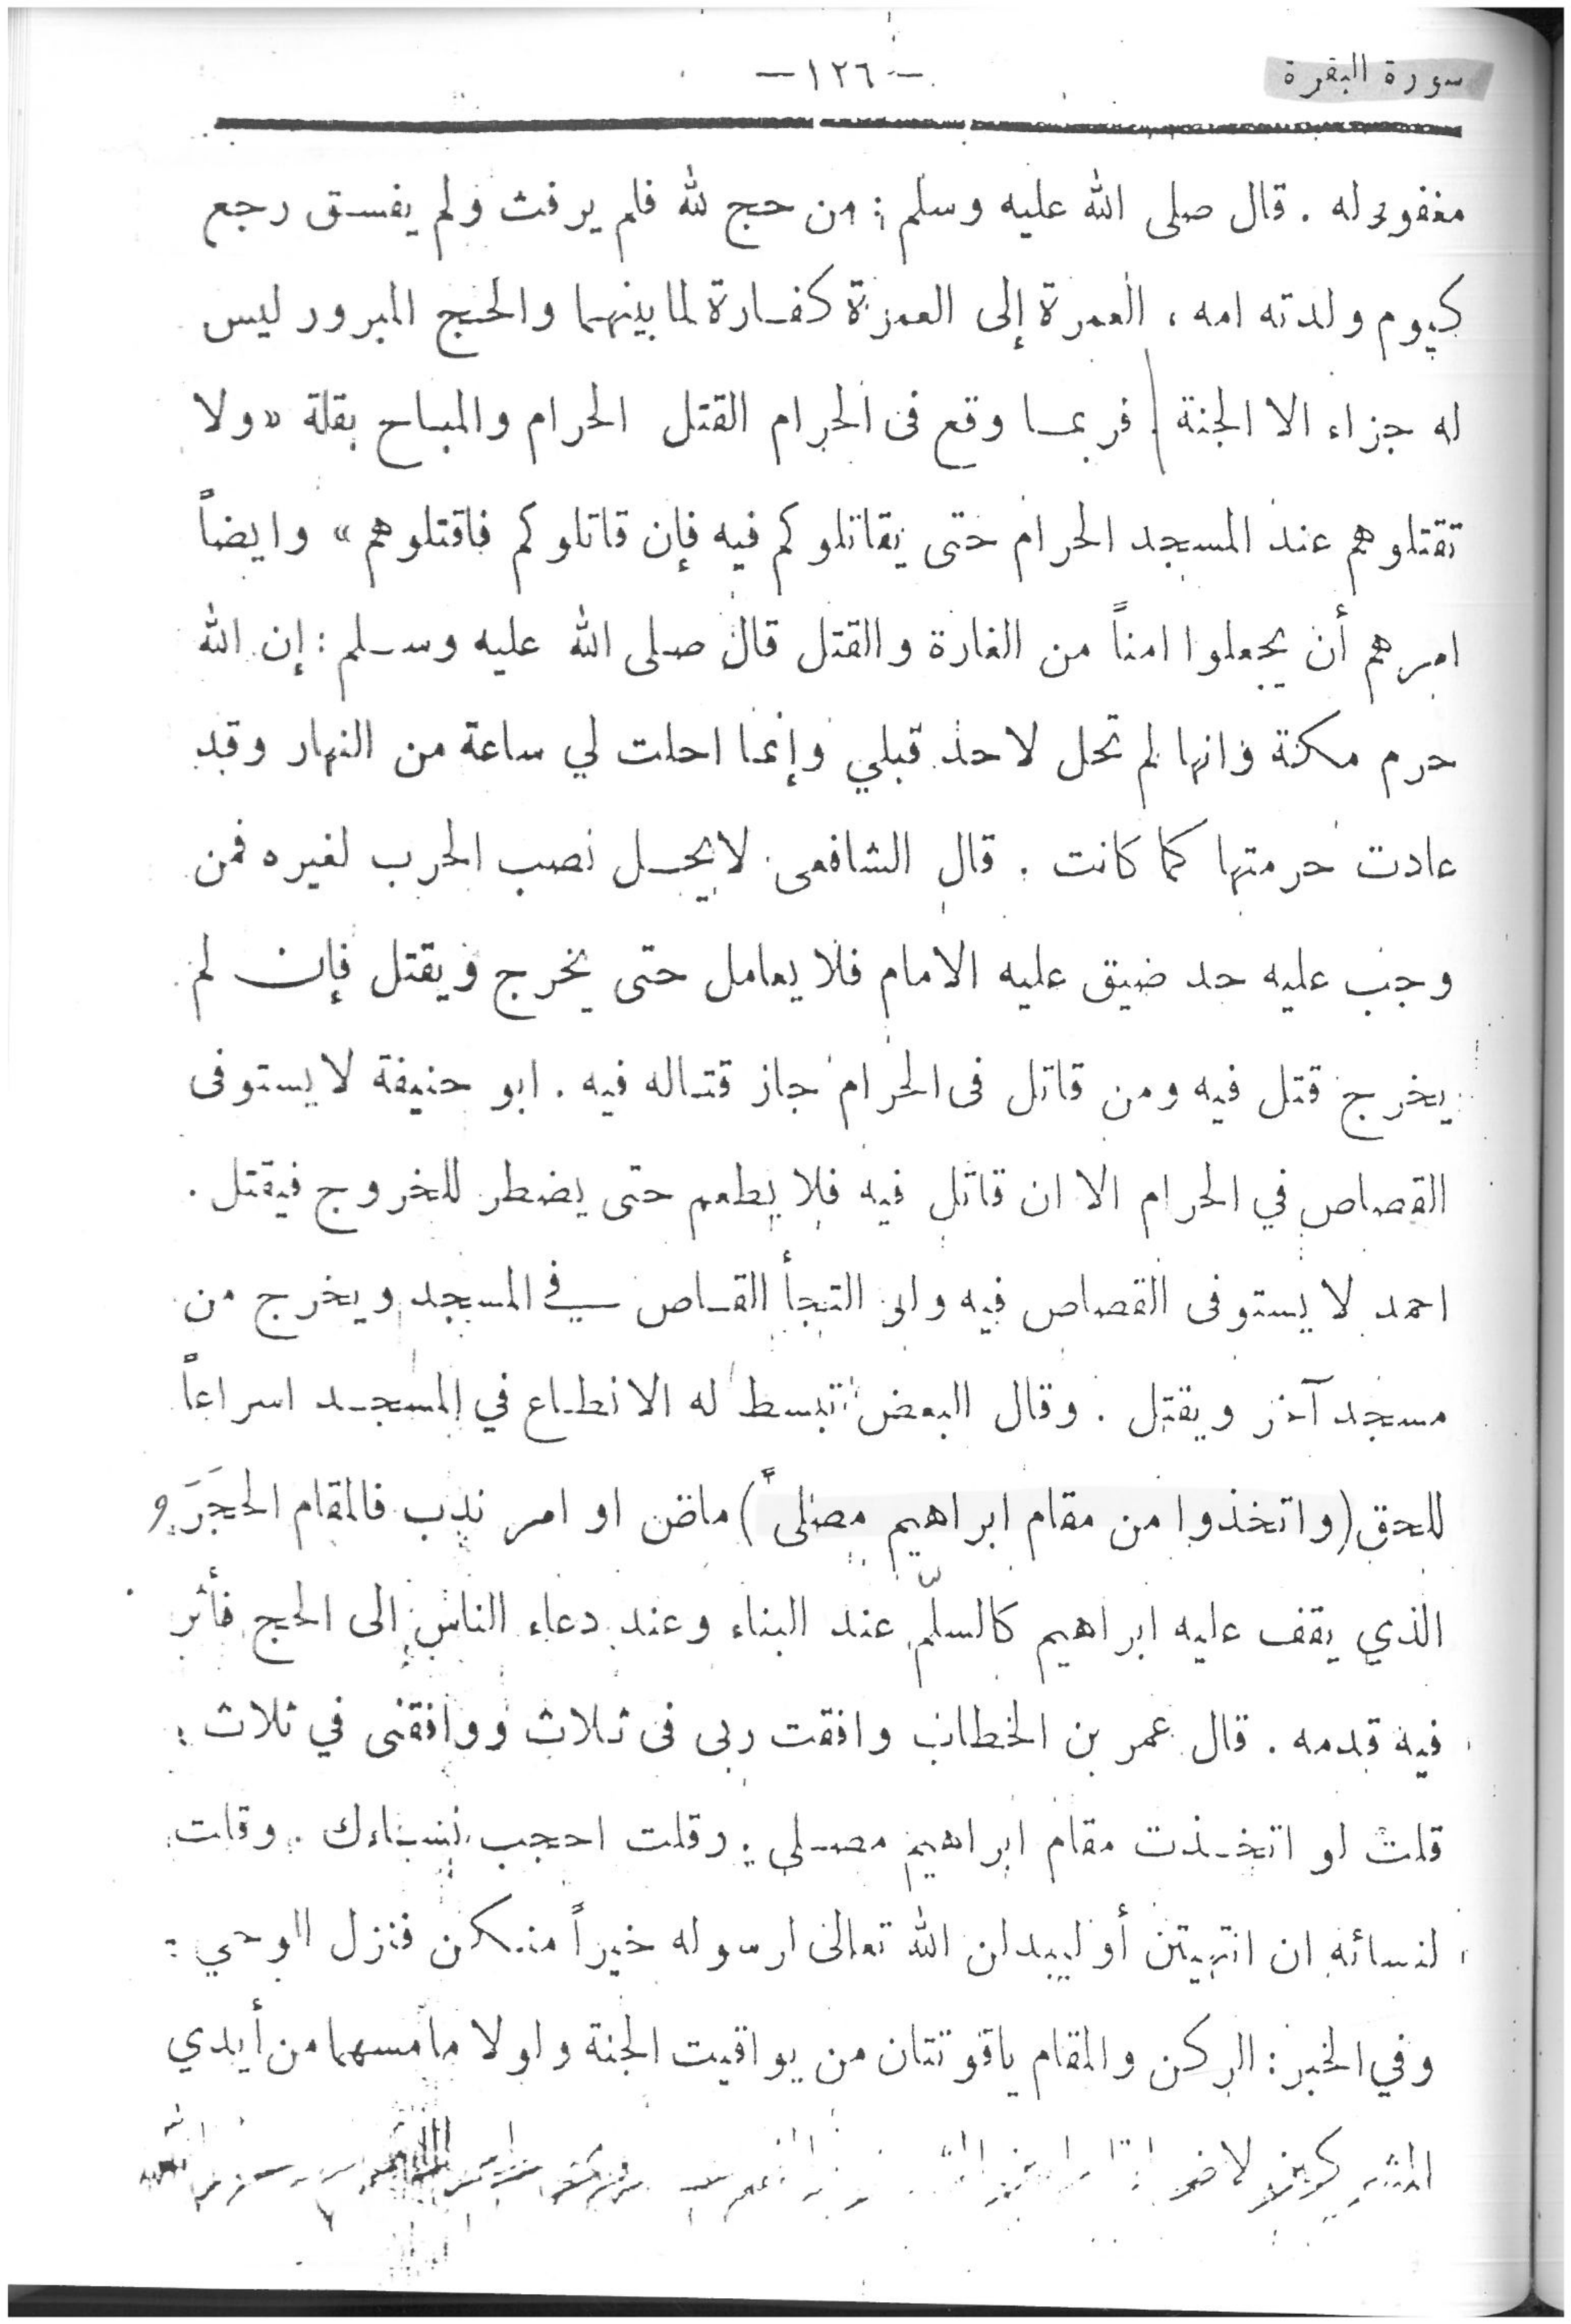 سورة البقرة
—١٢٦—
مغفور له . قال صلى الله عليه وسلم : من حج لله فلم يرفث ولم يفسق رجع
كيوم ولدته امه ، العمرة إلى العمرة كفارة لما بينهما والحج المبرور ليس
له جزاء الا الجنة . فربما وقع فى الحرام القتل الحرام والمباح بقلة «ولا
تقتلوهم عند المسجد الحرام حتى يقاتلوكم فيه فإن قاتلوكم فاقتلوهم» وايضاً
امرهم أن يجعلوا امناً من الغارة والقتل قال صلى الله عليه وسلم : إن الله
حرم مكة وانها لم تحل لاحد قبلي وإنما احلت لي ساعة من النهار وقد
عادت حرمتها كما كانت . قال الشافعى لا يحل نصب الحرب لغيره فمن
وجب عليه حد ضيق عليه الامام فلا يعامل حتى يخرج ويقتل فإن لم
يخرج قتل فيه ومن قاتل فى الحرام جاز قتاله فيه . ابو حنيفة لا يستوفى
القصاص في الحرام الا ان قاتل فيه فلا يطعم حتى يضطر للخروج فيقتل .
احمد لا يستوفى القصاص فيه ولو التجأ القاص في المسجد ويخرج من
مسجد آخر ويقتل . وقال البعض تبسط له الانطاع في المسجد اسراعاً
للحق (واتخذوا من مقام ابراهيم مصلىً) ماض او امر ندب فالمقام الحجَرَ و
الذي يقف عليه ابراهيم كالسلّم عند البناء وعند دعاء الناس إلى الحج فأثر
فيه قدمه . قال عمر بن الخطاب وافقت ربى فى ثلاث ووافقنى في ثلاث :
قلت لو اتخذت مقام ابراهيم مصلى . وقلت احجب نساءك . وقلت
لنسائه ان انتهيتن أو ليبدلن الله تعالى لرسوله خيراً منكن فنزل الوحي :
وفي الخبر : الركن والمقام ياقوتتان من يواقيت الجنة ولولا ما مسهما من أيدي
المشركين